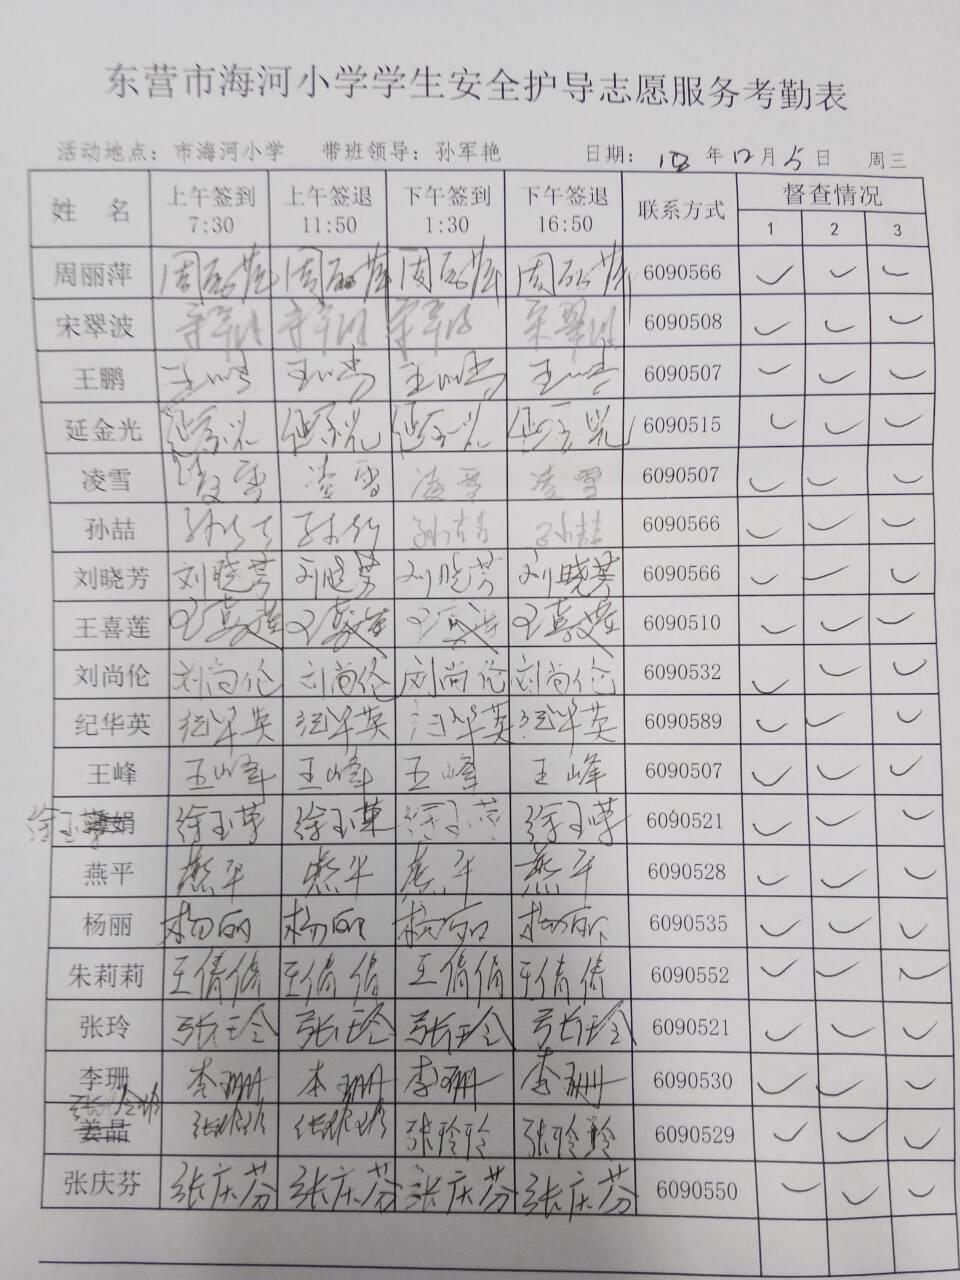 东营市海河小学学生安全护导志愿服务考勤表
活动地点：市海河小学 带班领导：孙军艳 日期：18年12月5日 周三
姓 名 上午签到 7:30 上午签退 11:50 下午签到 1:30 下午签退 16:50 联系方式 督查情况 1 2 3
周丽萍 周丽萍 周丽萍 周丽萍 周丽萍 6090566 ✓ ✓ ✓
宋翠波 宋翠波 宋翠波 宋翠波 宋翠波 6090508 ✓ ✓ ✓
王鹏 王鹏 王鹏 王鹏 王鹏 6090507 ✓ ✓ ✓
延金光 延金光 延金光 延金光 延金光 6090515 ✓ ✓ ✓
凌雪 凌雪 凌雪 凌雪 凌雪 6090507 ✓ ✓ ✓
孙喆 孙喆 孙喆 6090566 ✓ ✓ ✓
刘晓芳 刘晓芳 刘晓芳 刘晓芳 刘晓芳 6090566 ✓ ✓ ✓
王喜莲 王喜莲 王喜莲 王喜莲 王喜莲 6090510 ✓ ✓ ✓
刘尚伦 刘尚伦 刘尚伦 刘尚伦 刘尚伦 6090532 ✓ ✓ ✓
纪华英 纪华英 纪华英 纪华英 纪华英 6090589 ✓ ✓ ✓
王峰 王峰 王峰 王峰 王峰 6090507 ✓ ✓ ✓
徐玉苹 娟 徐玉苹 徐玉苹 徐玉苹 徐玉苹 6090521 ✓ ✓ ✓
燕平 燕平 燕平 燕平 燕平 6090528 ✓ ✓ ✓
杨丽 杨丽 杨丽 杨丽 杨丽 6090535 ✓ ✓ ✓
朱莉莉 王倩倩 王倩倩 王倩倩 王倩倩 6090552 ✓ ✓ ✓
张玲 张玲 张玲 张玲 张玲 6090521 ✓ ✓ ✓
李珊 李珊 李珊 李珊 李珊 6090530 ✓ ✓ ✓
张玲玲 姜晶 张玲玲 张玲玲 张玲玲 张玲玲 6090529 ✓ ✓ ✓
张庆芬 张庆芬 张庆芬 张庆芬 张庆芬 6090550 ✓ ✓ ✓